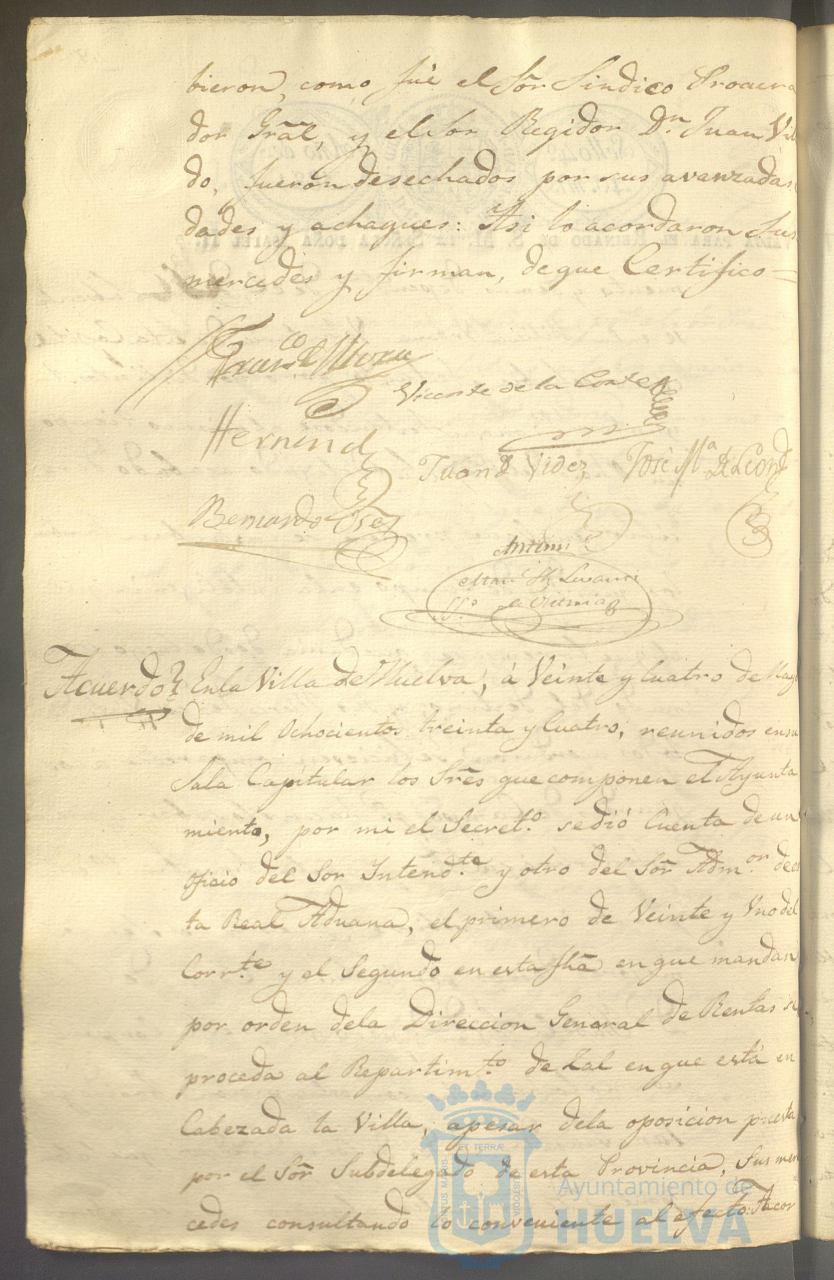 bieron, como fué el Sor Sindico Procura
dor Gral, y el Sor Regidor Dn. Juan Vi
do, fueron desechados por sus avanzadas
dades y achaques: Asi lo acordaron Sus
mercedes y firman, de que Certifico=
Vicente de la Corte
Hernand
Juan Videz José Ma. de Leon
Bernardo
Antemi
Acuerdo En la Villa de Huelva, á Veinte y Cuatro de May
de mil Ochocientos treinta y Cuatro, reunidos en su
Sala Capitular los Sres que componen el Ayunta
miento, por mi el Secreto. se dió Cuenta de un
oficio del Sor Intendte. y otro del Sor Admor. de es
ta Real Aduana, el primero de Veinte y Uno del
Corrte. y el Segundo en esta fha en que mandan
por orden dela Direccion General de Rentas se
proceda al Repartimto. de Sal en que está en
Cabezada la Villa, apesar dela oposicion puesta
por el Sor Subdelegado de esta Provincia, Sus mer
cedes consultando lo conveniente al efecto: Acor
Ayuntamiento de
HUELVA